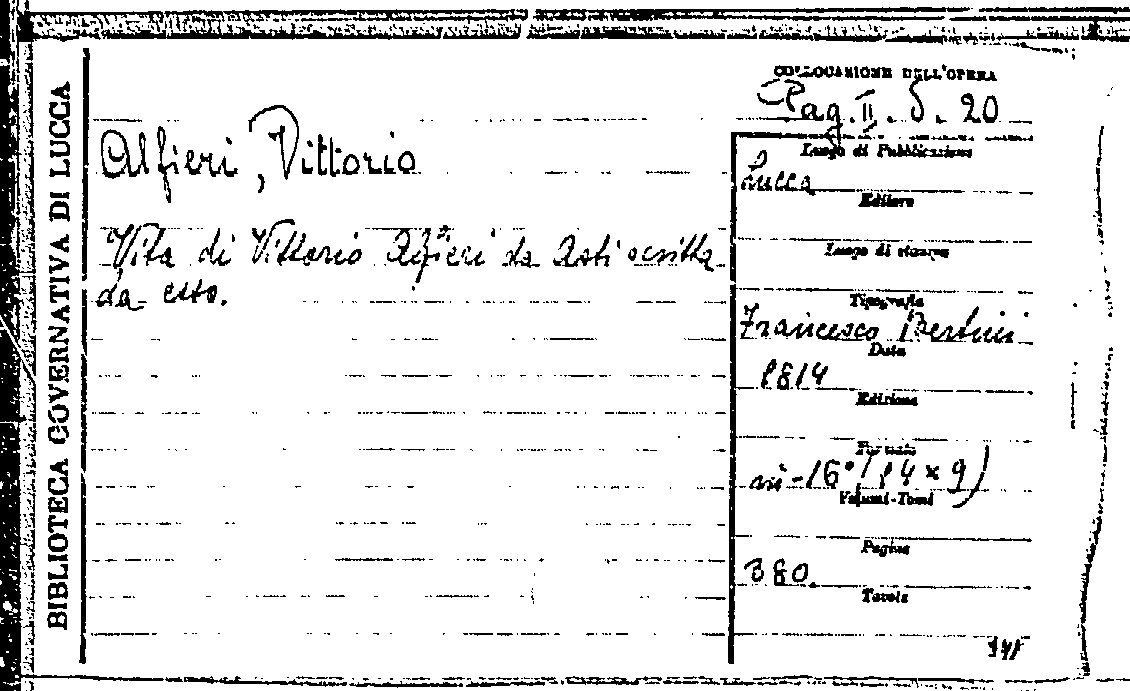 BIBLIOTECA GOVERNATIVA DI LUCCA
COLLOCAZIONE DELL'OPERA
Pag. II. δ. 20
Alfieri, Vittorio
Vita di Vittorio Alfieri da Asti scritta
da esso.
Luogo di Pubblicazione
Lucca
Editore
Luogo di stampa
Tipografia
Francesco Bertini
Data
1814
Edizione
Formato
in-16° (14 x 9)
Volumi-Tomi
Pagine
380.
Tavole